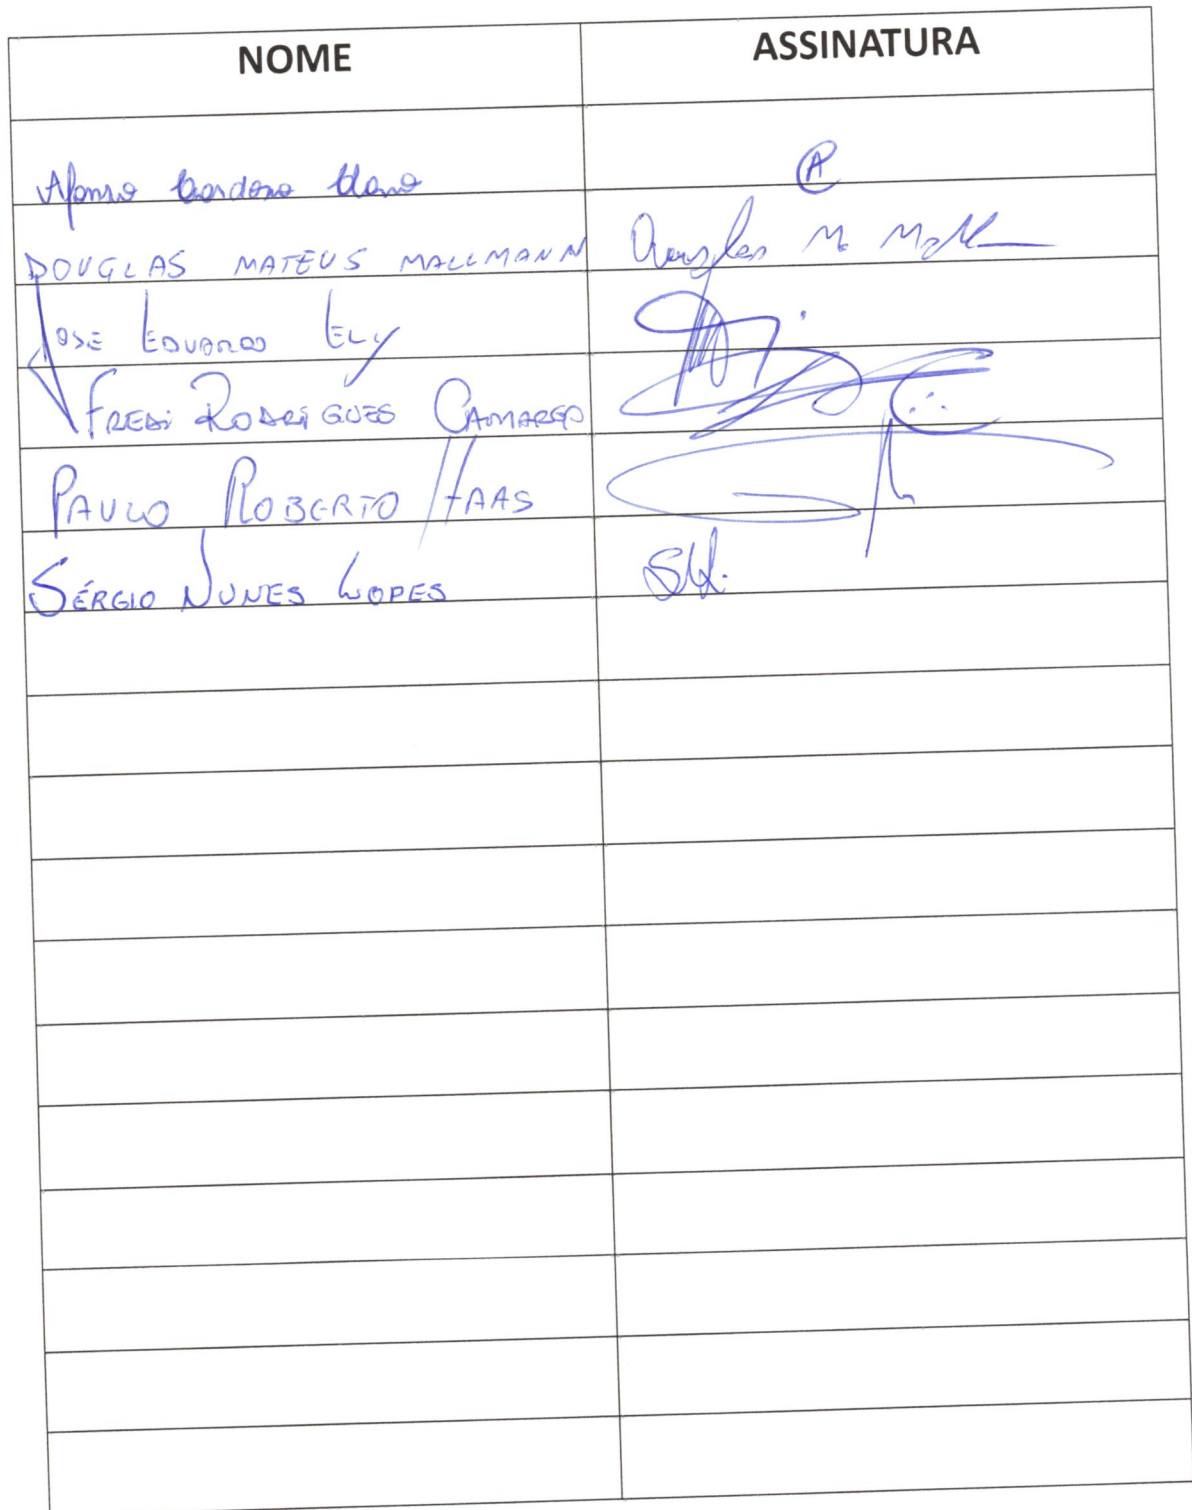 NOME ASSINATURA
Afonso Cardoso
DOUGLAS MATEUS MALLMANN Douglas M. Mallm
JOSE EDUARDO ELY
FREDI RODRIGUES CAMARGO
PAULO ROBERTO HAAS
SÉRGIO NUNES LOPES